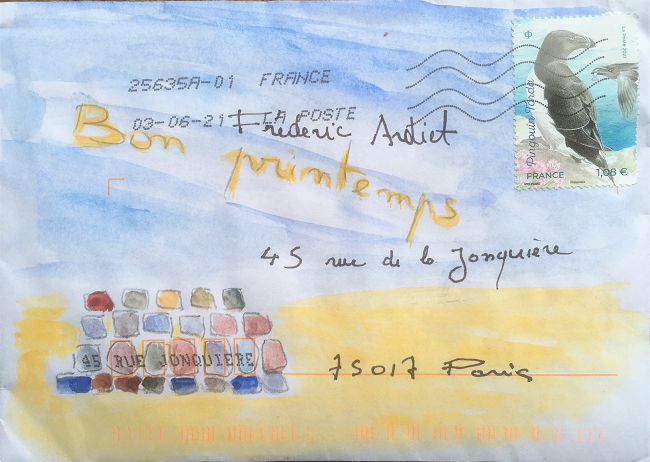 25635A-01 FRANCE
03-06-21 LA POSTE
Pingouin torda
La Poste 2021
FRANCE
1,08 €
Bon printemps
Frédéric
45 rue de la Jonquière
45 RUE JONQUIERE
75017 Paris